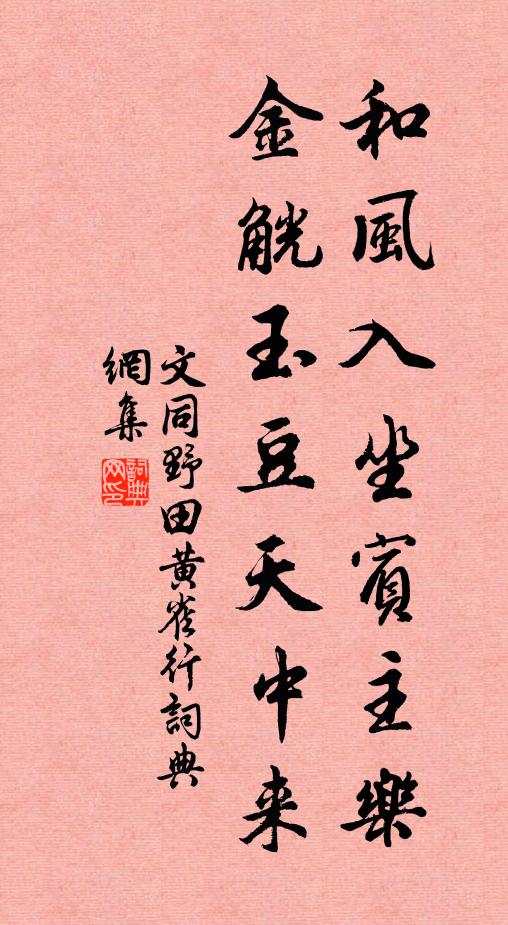 和風入坐賓主樂
金觥玉豆天中来
文同野田黄雀行詞典
網集
詞典
网印